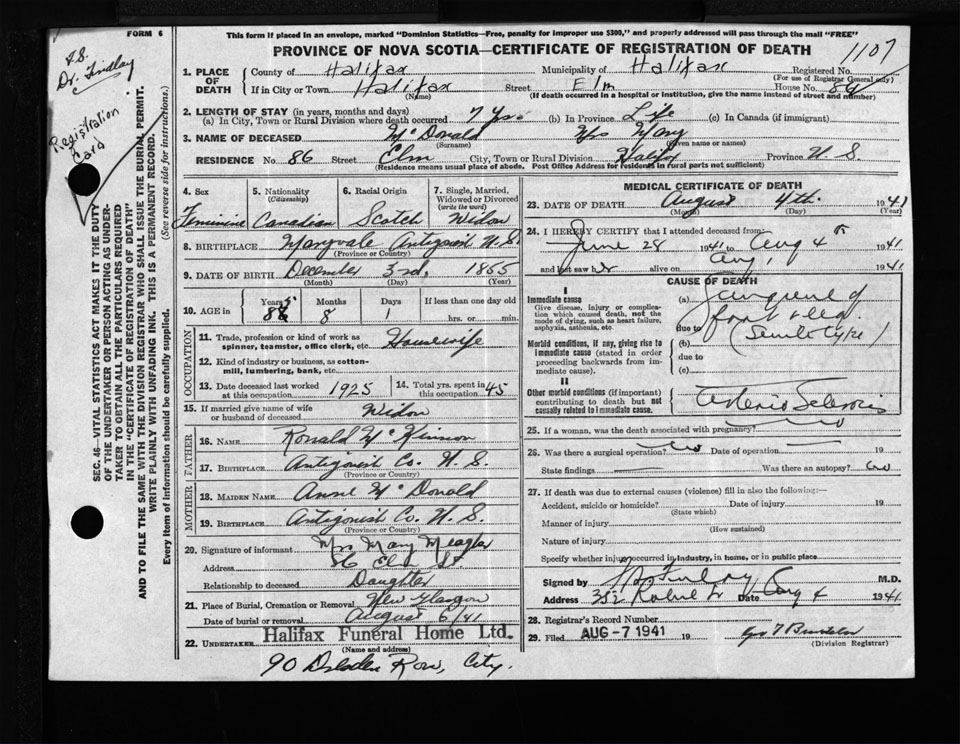 FORM 6
This form if placed in an envelope, marked "Dominion Statistics—Free, penalty for improper use $300," and properly addressed will pass through the mail "FREE"
PROVINCE OF NOVA SCOTIA—CERTIFICATE OF REGISTRATION OF DEATH
1107
Dr. Findlay
Registration Card
1. PLACE OF DEATH County of Halifax Municipality of Halifax Registered No.
(For use of Registrar General only)
If in City or Town Halifax Street Elm House No. 86
(Name) (If death occurred in a hospital or institution, give the name instead of street and number)
2. LENGTH OF STAY (in years, months and days)
(a) In City, Town or Rural Division where death occurred 7 yrs. (b) In Province Life (c) In Canada (if immigrant)
3. NAME OF DECEASED McDonald Mrs Mary
(Surname) (Given name or names)
RESIDENCE No. 86 Street Elm City, Town or Rural Division Halifax Province N. S.
(Residence means usual place of abode. Post Office Address for Residents in rural parts not sufficient)
4. Sex Feminine
5. Nationality (Citizenship) Canadian
6. Racial Origin Scotch
7. Single, Married, Widowed or Divorced (write the word) Widow
8. BIRTHPLACE Maryvale Antigonish N.S.
(Province or Country)
9. DATE OF BIRTH December 3rd, 1855
(Month) (Day) (Year)
10. AGE in Years 85 Months 8 Days 1 If less than one day old hrs. or min.
OCCUPATION
11. Trade, profession or kind of work as spinner, teamster, office clerk, etc. Housewife
12. Kind of industry or business, as cotton-mill, lumbering, bank, etc.
13. Date deceased last worked at this occupation 1925 14. Total yrs. spent in this occupation 45
15. If married give name of wife or husband of deceased Widow
FATHER
16. NAME Ronald McKinnon
17. BIRTHPLACE Antigonish Co. N. S.
(Province or Country)
MOTHER
18. MAIDEN NAME Anne McDonald
19. BIRTHPLACE Antigonish Co. N. S.
(Province or Country)
20. Signature of informant Mrs Mary Meagher
Address 86 Elm St.
Relationship to deceased Daughter
21. Place of Burial, Cremation or Removal New Glasgow
Date of burial or removal August 6/41
22. UNDERTAKER Halifax Funeral Home Ltd.
(Name and address)
90 Dresden Row, City.
MEDICAL CERTIFICATE OF DEATH
23. DATE OF DEATH August 4th. 1941
(Month) (Day) (Year)
24. I HEREBY CERTIFY that I attended deceased from
June 28 1941 to Aug 4th 1941
and last saw her alive on Aug 1 1941
CAUSE OF DEATH
I
Immediate cause (a) Gangrene of foot & leg
Give disease, injury or complication which caused death, not the mode of dying, such as heart failure, asphyxia, asthenia, etc.
due to (Senile type)
Morbid conditions, if any, giving rise to immediate cause (stated in order proceeding backwards from immediate cause). (b)
due to
(c)
II
Other morbid conditions (if important) contributing to death but not causally related to immediate cause. Arterio Sclerosis
25. If a woman, was the death associated with pregnancy? no
26. Was there a surgical operation? no Date of operation 19
State findings Was there an autopsy? no
27. If death was due to external causes (violence) fill in also the following:—
Accident, suicide or homicide? Date of injury 19
(State which)
Manner of injury
(How sustained)
Nature of injury
Specify whether injury occurred in industry, in home, or in public place
Signed by M.D.
Address Date Aug 4 1941
28. Registrar's Record Number
29. Filed AUG -7 1941 19
(Division Registrar)
SEC. 46—VITAL STATISTICS ACT MAKES IT THE DUTY OF THE UNDERTAKER OR PERSON ACTING AS UNDERTAKER TO OBTAIN ALL THE PARTICULARS REQUIRED IN THE "CERTIFICATE OF REGISTRATION OF DEATH"
AND TO FILE THE SAME WITH THE DIVISION REGISTRAR WHO SHALL ISSUE THE BURIAL PERMIT.
WRITE PLAINLY WITH UNFADING INK. THIS IS A PERMANENT RECORD.
Every item of information should be carefully supplied. (See reverse side for instructions.)